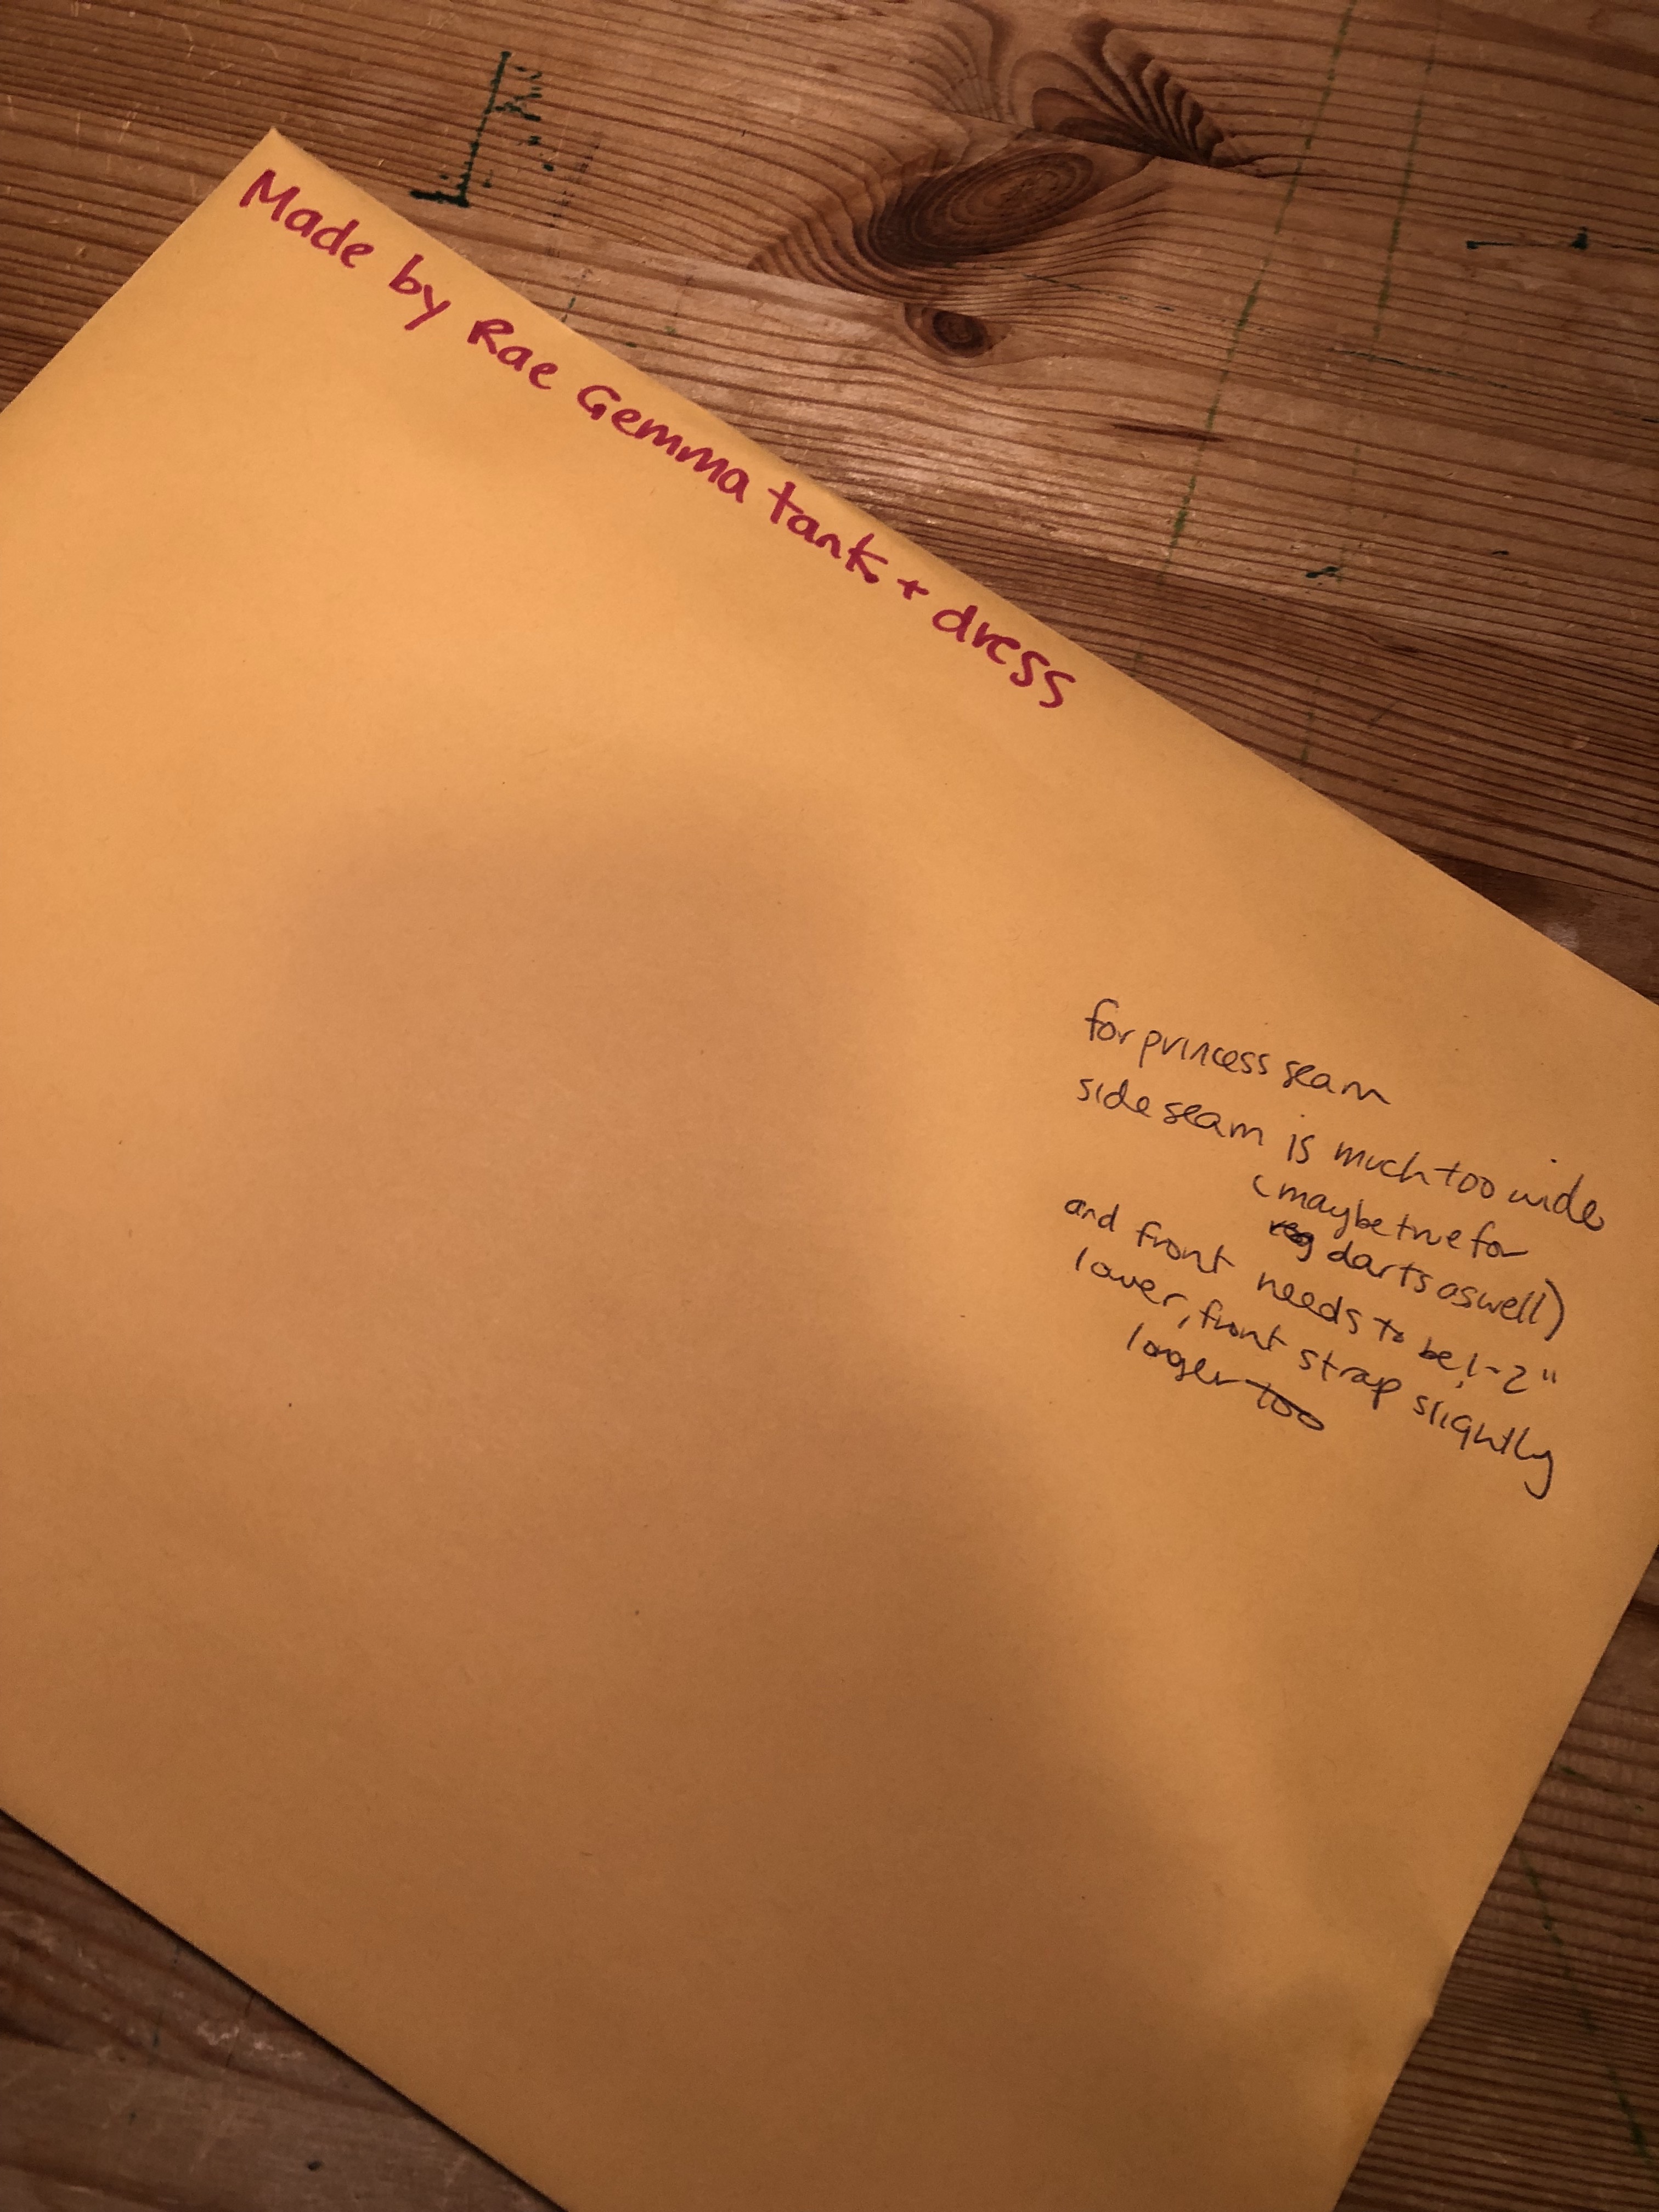 Made by Rae Gemma tank + dress
for princess seam
side seam is much too wide
(maybe true for
reg darts as well)
and front needs to be 1-2"
lower, front strap slightly
longer too